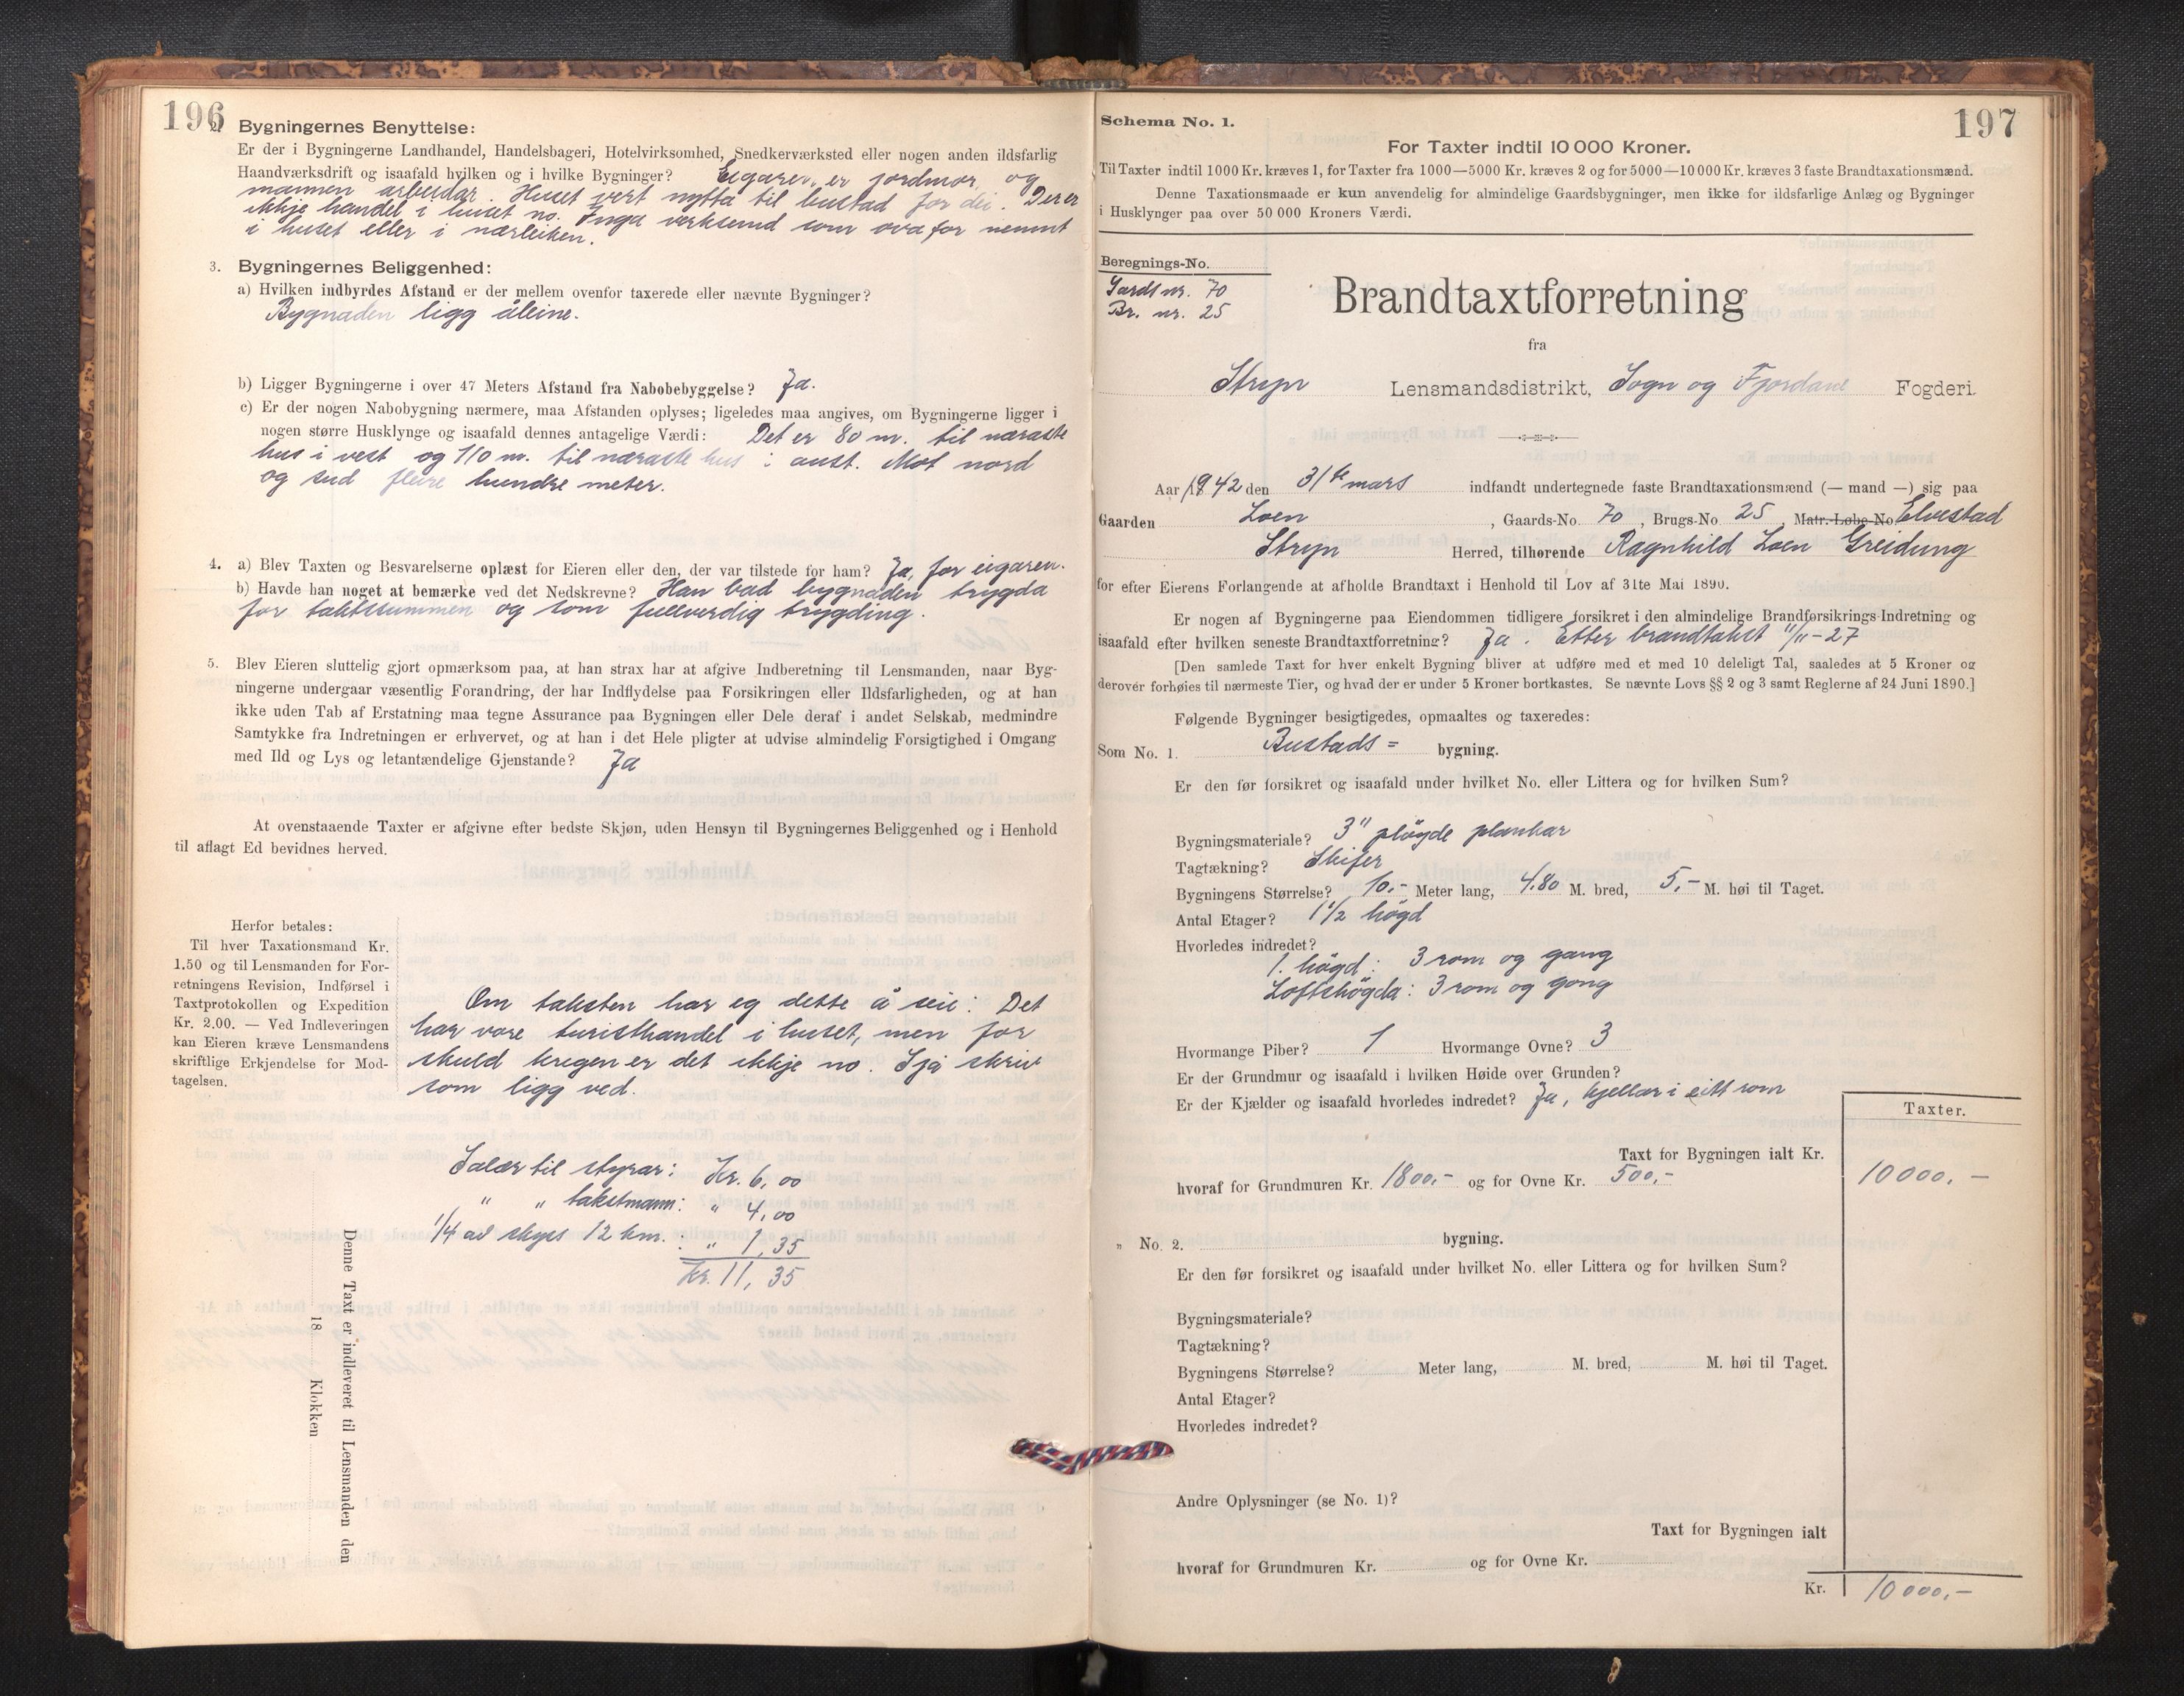 196
2. Bygningernes Benyttelse:
Er der i Bygningerne Landhandel, Handelsbageri, Hotelvirksomhed, Snedkerværksted eller nogen anden ildsfarlig
Haandværksdrift og isaafald hvilken og i hvilke Bygninger? Eigaren er jordmor, og
mannen arbeidar. Huset vert nytta til bustad for dei. Der er
ikkje handel i huset no. Inga verksemd som ovafor nemnt
i huset eller i nærleiken.
3. Bygningernes Beliggenhed:
a) Hvilken indbyrdes Afstand er der mellem ovenfor taxerede eller nævnte Bygninger?
Bygnaden ligg åleine.
b) Ligger Bygningerne i over 47 Meters Afstand fra Nabobebyggelse? Ja.
c) Er der nogen Nabobygning nærmere, maa Afstanden oplyses; ligeledes maa angives, om Bygningerne ligger i
nogen større Husklynge og isaafald dennes antagelige Værdi: Det er 80 m. til næraste
hus i vest og 110 m. til næraste hus i aust. Mot nord
og sud fleire hundre meter.
4. a) Blev Taxten og Besvarelserne oplæst for Eieren eller den, der var tilstede for ham? Ja, for eigaren.
b) Havde han noget at bemærke ved det Nedskrevne? Han bad bygnaden trygda
for takstsummen og som fullverdig trygding.
5. Blev Eieren sluttelig gjort opmærksom paa, at han strax har at afgive Indberetning til Lensmanden, naar Byg-
ningerne undergaar væsentlig Forandring, der har Indflydelse paa Forsikringen eller Ildsfarligheden, og at han
ikke uden Tab af Erstatning maa tegne Assurance paa Bygningen eller Dele deraf i andet Selskab, medmindre
Samtykke fra Indretningen er erhvervet, og at han i det Hele pligter at udvise almindelig Forsigtighed i Omgang
med Ild og Lys og letantændelige Gjenstande? Ja
At ovenstaaende Taxter er afgivne efter bedste Skjøn, uden Hensyn til Bygningernes Beliggenhed og i Henhold
til aflagt Ed bevidnes herved.
Herfor betales:
Til hver Taxationsmand Kr.
1.50 og til Lensmanden for For-
retningens Revision, Indførsel i
Taxtprotokollen og Expedition
Kr. 2.00. — Ved Indleveringen
kan Eieren kræve Lensmandens
skriftlige Erkjendelse for Mod-
tagelsen.
Om taksten har eg dette å seie: Det
har vore turisthandel i huset, men for
skuld krigen er det ikkje no. Sjå skriv
som ligg ved.
Salær til styrar: Kr. 6,00
" " takstmann: " 4,00
1/4 av skyss 12 km. : " 1,35
Kr. 11,35
Denne Taxt er indleveret til Lensmanden den
18 Klokken
197
Schema No. 1.
For Taxter indtil 10 000 Kroner.
Til Taxter indtil 1000 Kr. kræves 1, for Taxter fra 1000—5000 Kr. kræves 2 og for 5000—10000 Kr. kræves 3 faste Brandtaxationsmænd.
Denne Taxationsmaade er kun anvendelig for almindelige Gaardsbygninger, men ikke for ildsfarlige Anlæg og Bygninger
i Husklynger paa over 50 000 Kroners Værdi.
Beregnings-No.
Gardsnr. 70
Br. nr. 25
Brandtaxtforretning
fra
Stryn Lensmandsdistrikt, Sogn og Fjordane Fogderi.
Aar 1942 den 31te mars indfandt undertegnede faste Brandtaxationsmænd (— mand —) sig paa
Gaarden Loen, Gaards-No. 70, Brugs-No. 25, Matr.-Løbe-No Elvestad
Stryn Herred, tilhørende Ragnhild Loen Greidung
for efter Eierens Forlangende at afholde Brandtaxt i Henhold til Lov af 31te Mai 1890.
Er nogen af Bygningerne paa Eiendommen tidligere forsikret i den almindelige Brandforsikrings-Indretning og
isaafald efter hvilken seneste Brandtaxtforretning? Ja. Etter brandtakst 11/11-27
[Den samlede Taxt for hver enkelt Bygning bliver at udføre med et med 10 deleligt Tal, saaledes at 5 Kroner og
derover forhøies til nærmeste Tier, og hvad der er under 5 Kroner bortkastes. Se nævnte Lovs §§ 2 og 3 samt Reglerne af 24 Juni 1890.]
Følgende Bygninger besigtigedes, opmaaltes og taxeredes:
Som No. 1. Bustads= bygning.
Er den før forsikret og isaafald under hvilket No. eller Littera og for hvilken Sum?
Bygningsmateriale? 3" pløgde plankar
Tagtækning? Skifer
Bygningens Størrelse? 10.- Meter lang, 4.80 M. bred, 5,- M. høi til Taget.
Antal Etager? 1 1/2 høgd
Hvorledes indredet?
1. høgd: 3 rom og gang
Loftshøgda: 3 rom og gong
Hvormange Piber? 1 Hvormange Ovne? 3
Er der Grundmur og isaafald i hvilken Høide over Grunden?
Er der Kjælder og isaafald hvorledes indredet? Ja, kjellar i eitt rom
Taxter.
Taxt for Bygningen ialt Kr.
hvoraf for Grundmuren Kr. 1800,- og for Ovne Kr. 500,- 10000,-
" No. 2. bygning.
Er den før forsikret og isaafald under hvilket No. eller Littera og for hvilken Sum?
Bygningsmateriale?
Tagtækning?
Bygningens Størrelse? Meter lang, M. bred, M. høi til Taget.
Antal Etager?
Hvorledes indredet?
Andre Oplysninger (se No. 1)?
Taxt for Bygningen ialt
hvoraf for Grundmuren Kr. og for Ovne Kr.
Kr. 10000,-